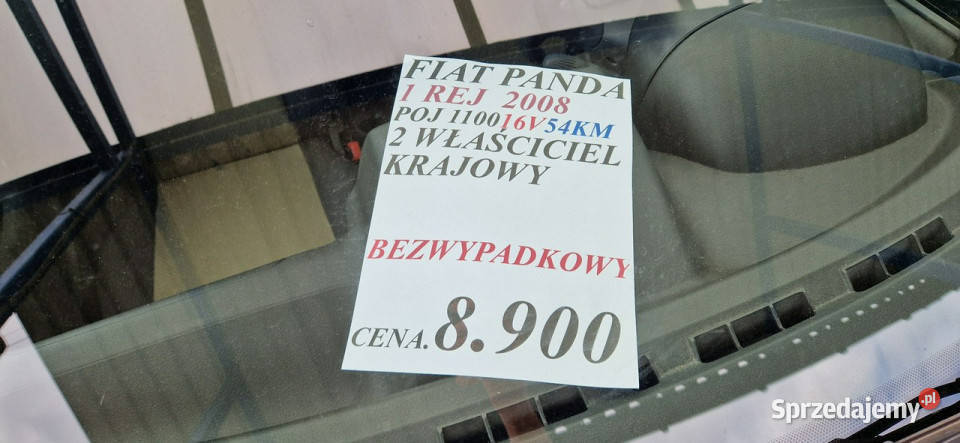 FIAT PANDA
1 REJ 2008
POJ 1100 16V 54KM
2 WŁAŚCICIEL
KRAJOWY
BEZWYPADKOWY
CENA. 8.900
Sprzedajemy.pl